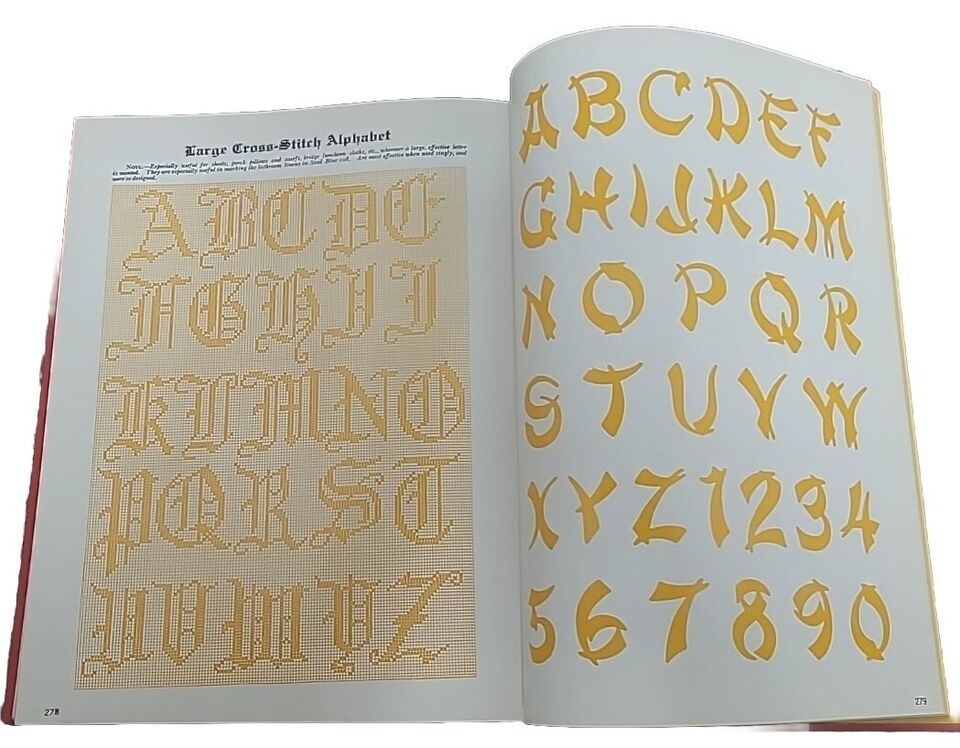 Large Cross-Stitch Alphabet
NOTE.—Especially useful for sheets, porch pillows and scarfs, bridge luncheon cloths, etc., wherever a large, effective letter
is wanted. They are especially useful in marking the bathroom linens in Steel Blue Are most effective when used singly, and
were so designed.
A B C D E
F G H I J
K L M N O
P Q R S T
U V W Y Z
278
A B C D E F
G H I J K L M
N O P Q R
S T U V W
X Y Z 1 2 3 4
5 6 7 8 9 0
279